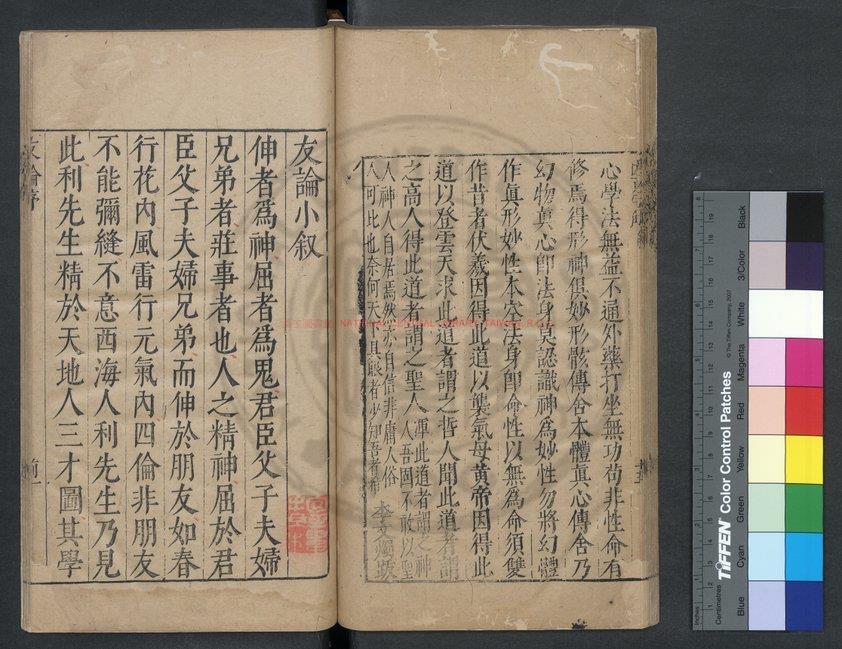 心學法無益不通外藥打坐無功苟非性命有
修焉得形神俱妙形骸傳舍本體真心傳舍乃
幻物真心即法身莫認識神為妙性勿將幻體
作真形妙性本空法身即命性以無為命須雙
作昔者伏羲因得此道以襲氣母黃帝因得此
道以登雲天求此道者謂之哲人聞此道者謂
之高人得此道者謂之聖人運此道者謂之神
人吾固不敢以聖
人神人自居焉然亦自信非庸人俗
人可比也奈何天
友論小叙
伸者爲神屈者爲鬼君臣父子夫婦
兄弟者莊事者也人之精神屈於君
臣父子夫婦兄弟而伸於朋友如春
行花內風雷行元氣內四倫非朋友
不能彌縫不意西海人利先生乃見
此利先生精於天地人三才圖其學
NATIONAL CENTRAL LIBRARY, TAIWAN, R.O.C.
TIFFEN Color Control Patches
© The Tiffen Company, 2007
Inches
Centimetres
Blue
Cyan
Green
Yellow
Red
Magenta
White
3/Color
Black